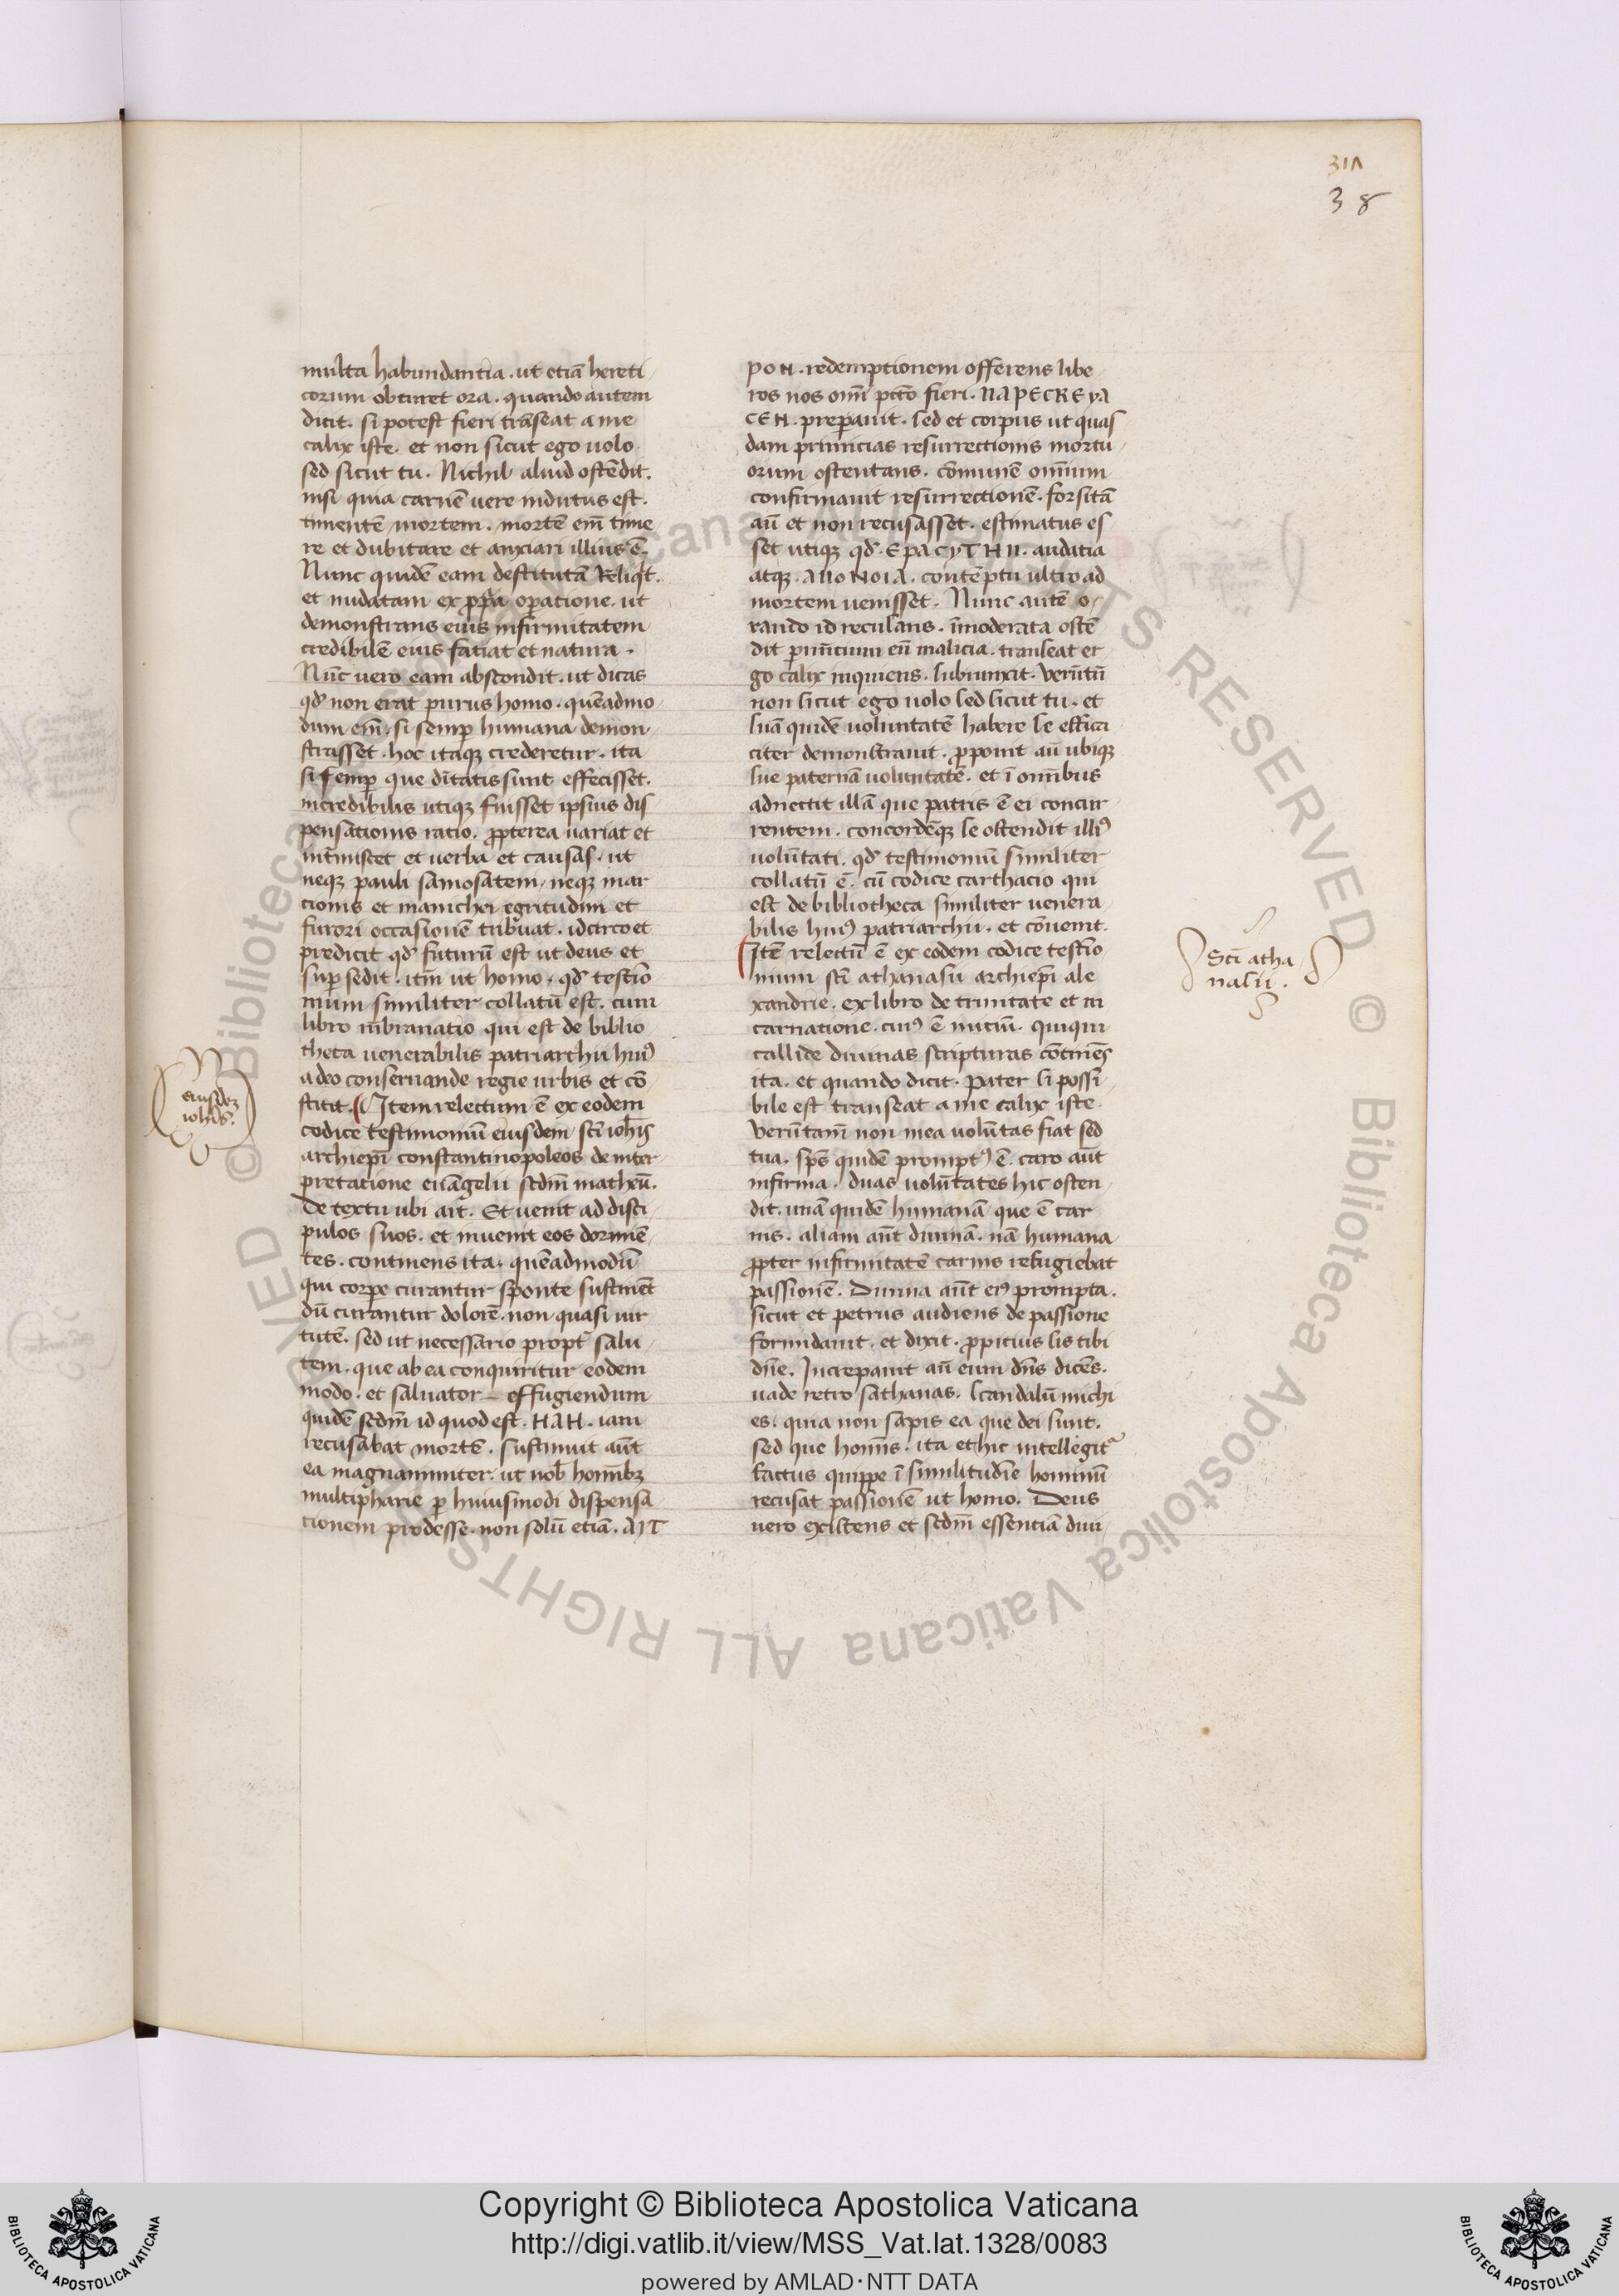 31Λ
38
multa habundantia. ut etiā hereti
corum obturet ora. quando autem
dicit. si potest fieri trāseat a me
calix iste. et non sicut ego uolo
sed sicut tu. Nichil aliud ostēdit.
nisi quia carnē uere indutus est.
timentē mortem. mortē em̄ time
re et dubitare et anxiari illius ē.
Nunc quidē eam destitutā reliqt.
et nudatam ex ꝓpͥa oꝑatione. ut
demonstrans eius infirmitatem
credibilē eius faciat et natura.
Nūc uero eam abscondit. ut dicas
qd̓ non erat purus homo. quēadmo
dum em̄. si semꝑ humana demon
strasset. hoc itaqꝫ crederetur. ita
si semꝑ que dītatis sunt effecisset.
incredibilis utiqꝫ fuisset ipsius dis
pensationis ratio. ꝓpterea uariat et
int̄miscet et uerba et causas. ut
neqꝫ pauli samosatem. neqꝫ mar
cionis et manichei egritudini et
furori occasionē tribuat. idcirco et
predicit qd̓ futurū est ut deus et
suꝑ sedit. itm̄ ut homo. qd̓ testio
nium similiter collatū est. cum
libro mēbranatio qui est de biblio
theca uenerabilis patriarchii huiꝰ
a deo conseruande regie urbis et cō
stitit. Item relectum ē ex eodem
codice testimoniū eiusdem sc̄i ioh̄is
archiepī constantinopoleos de inter
pretatione euāgelii scdm̄ matheū.
De textu ubi ait. Et uenit ad disci
pulos suos. et inuenit eos dormiē
tes. continens ita. quēadmodū
qui corꝑe curantur sponte sustinēt
dū curantur dolorē. non quasi uir
tutē. sed ut necessario propt̄ salu
tem. que ab ea conquiritur eodem
modo. et saluator effugiendum
quidē scdm̄ id quod est. HAH. iam
recusabat mortē. sustinuit aūt
ea magnanimiter. ut nob̄ homībꝫ
multipharie ꝑ huiusmodi dispensa
tionem prodesse. non solū etiā. ΛΥΤ
eiusdeꝫ
ioh̄is.
ΡΟΗ. redemptionem offerens libe
ros nos om̄i pctō fieri. ΠΑΡΕCΚΕΥΑ
CΕΗ. preparauit. sed et corpus ut quas
dam primicias resurrectionis mortu
orum ostentans. cōmunē omīum
confirmauit resurrectionē. forsitā
aū et non recusasset. estimatus es
set utiqꝫ qd̓. ΕΡΑCΥΤΗΙΙ. audatia
atqꝫ. ΑΠΟΝΟΙΑ. contēptu ultro ad
mortem uenisset. Nunc autē o
rando id recusans. īmoderata ostē
dit ꝑniticium eū malicia. transeat er
go calix inquiens. subiunxit. verūtū
non sicut ego uolo sed sicut tu. et
suā quidē uoluntatē habere se effica
citer demonstrauit. ꝓponit aū ubiqꝫ
sue paternā uoluntatē. et ī omībus
adnectit illā que patris ē ei concur
rentem. concordēqꝫ se ostendit illiꝰ
uolūtati. qd̓ testimoniū similiter
collatū ē. cū codice carthacio qui
est de bibliotheca similiter uenera
bilis huiꝰ patriarchii. et cōuenit.
Itē relectū ē ex eodem codice testio
nium sc̄i athanasii archiepī ale
xandrie. ex libro de trinitate et in
carnatione. cuiꝰ ē initiū. quiqui
callide diuinas scripturas cōtinēs
ita. et quando dicit. Pater si possi
bile est transeat a me calix iste
verūtam̄ non mea uolūtas fiat sed
tua. sps̄ quidē promptꝰ ē. caro aūt
infirma. duas uolūtates hic osten
dit. unā quidē humanā que ē car
nis. aliam aūt diuinā. nā humana
ꝓpter infirmitatē carnis refugiebat
passionē. Diuina aūt eiꝰ prompta.
sicut et petrus audiens de passione
formidauit. et dixit. ꝓpitius sis tibi
dn̄e. Increpauit aū eum dn̄s dicēs.
uade retro sathanas. scandalū michi
es. quia non sapis ea que dei sunt.
sed que homīs. ita et hic intellegit᷑
factus quippe ī similitudīe hominū
recusat passionē ut homo. Deus
uero existens et scdm̄ essentiā diui
Scī atha
nasii.
Copyright © Biblioteca Apostolica Vaticana
http://digi.vatlib.it/view/MSS_Vat.lat.1328/0083
powered by AMLAD·NTT DATA
BIBLIOTECA APOSTOLICA VATICANA
BIBLIOTECA APOSTOLICA VATICANA